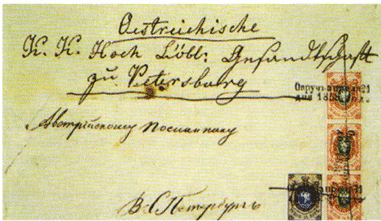 Oestreichische
K. K. Hoch Löbl: Gesandtschaft
zu Petersburg
Австрійскому Посланнику
В С. Петербургъ